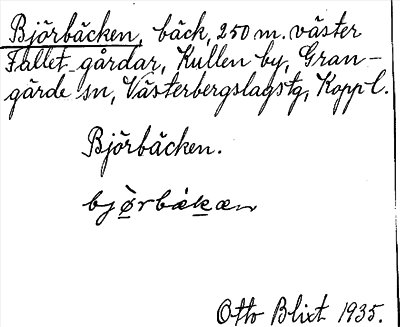 Björbäcken, bäck, 250 m. väster
Fallet-gårdar, Kullen by, Gran-
gärde sn, Västerbergslagstg, Kopp l.
Björbäcken.
bjö̱rbäḵæn
Otto Blixt 1935.